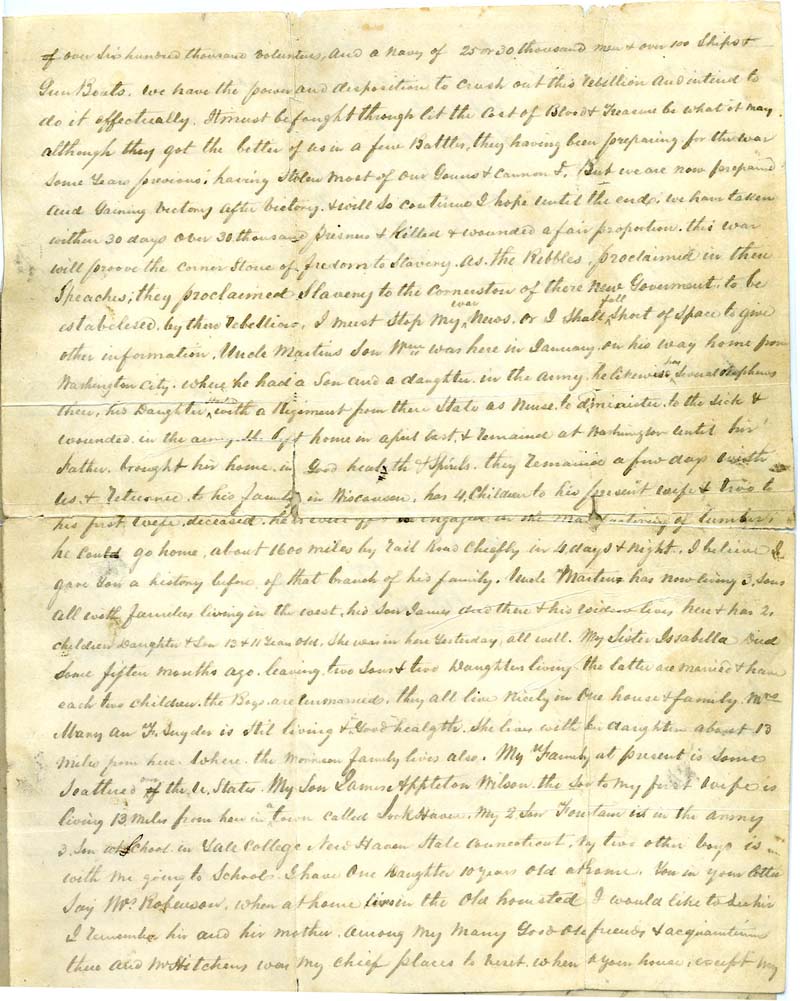 of over Six hundred thousand volunteers, and a Navy of 25 or 30 thousand men & over 100 Ships &
Gun Boats. we have the power and disposition to Crush out this rebellion and intend to
do it effectually. It must be fought through let the Cost of Blood & Treasure be what it may.
although they got the better of us in a few Battles, they having been preparing for the war
Some Years previous, having Stolen most of our Gouns & Cannon &. But we are now prepared
and Gaining victory after victory. & will So continue I hope until the end. we have taken
within 30 days over 30 thousand & Killed & wounded a fair proportion. this war
will proove the Corner Stone of freedom to Slavery. as. the Rebbles, proclaimed in there
Speaches; they proclaimed Slavery to the Cornerston of there New Goverment. to be
by there rebellion. I must Stop My war News. or I Shall fall Short of Space to give
other information, Uncle Martins Son Wm was here in January. on his way home from
Washington City. where he had a Son and a daughter. in the army. he likewise has Several Nephews
there, his Daughter with a Regiment from there State as Nurse. to to the Sick &
wounded. in the army. home in april last. & remained at Washington until hir
Father. brought hir home. in Good health & Spirits. they remained a few days with
us. & returned. to his family in Wisconsen, has 4 Children to his present wife & two to
his first wife, deceased. he is engaged in the of lumber,
he could go home, about 1600 miles by rail Road Chiefly in 4 days & night. I believe I
gave You a history before of that branch of his family. Uncle Martins has now living 3 Sons
all with families living in the west. his Son James died there & his widow lives here & has 2
children Daughter & Son 13 & 11 Year old. She was in here Yesterday, all well. My Sister Issabella Died
some fiften months ago. leaving two Sons & two Daughters living the latter are married & have
each two children. the Boys are unmarried. they all live Nicely in One house & family. Mrs
Mary An F. Snyder is Stil living & Good healgth. She lives with her daughter about 13
miles from here. Where. the Morrison family lives also. My Family at present is Some
Scattered over the U. States. My Son James Appleton Wilson. the Son to my first wife is
living 13 Miles from here in a town called Lock Haven. My 2 Son Fountain is in the army
3 Son at School. in Yale College New Haven State Connecticut. My two other boys is
with me going to School. I have One Daughter 10 years old at home. You in your letter
Say Mrs Roberson. when at home lives in the Old homsted I would like to See hir
I remember hir and hir mother. among My many Good Old friends &
there and Mr Hitchens was My chief places to visit. when to your house, except My